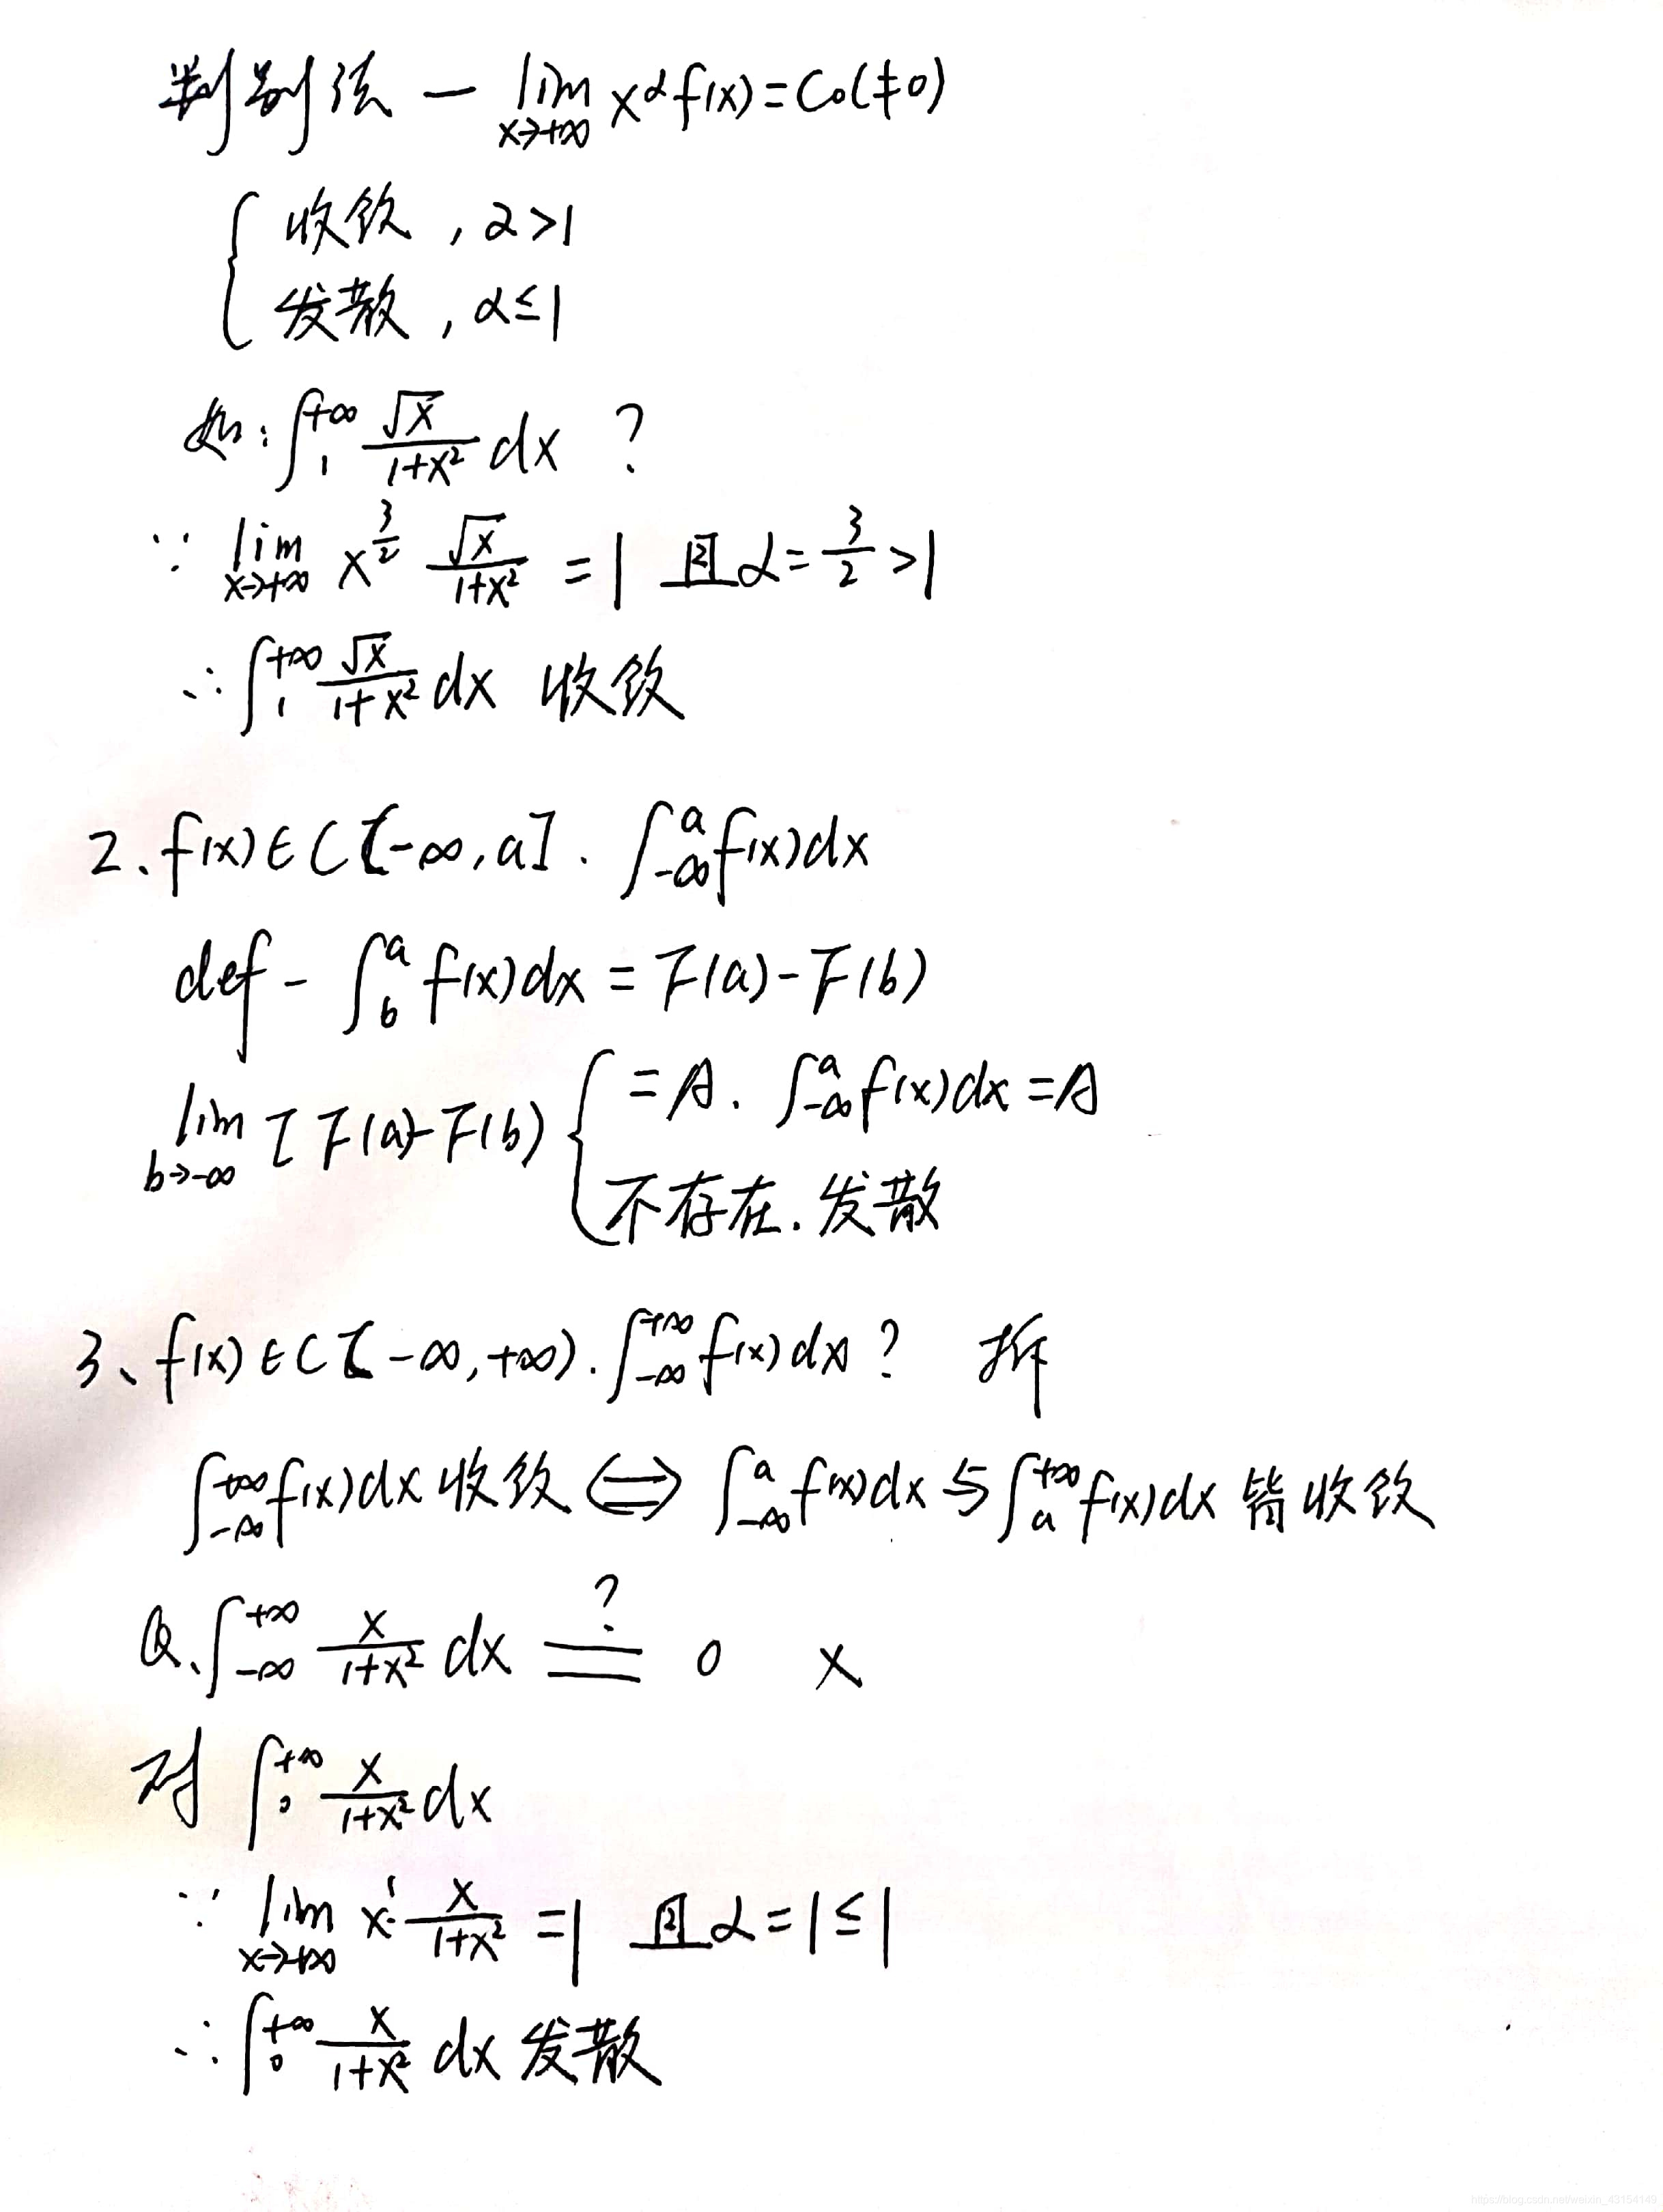 判别法 — lim x→+∞ x^α f(x) = C₀(≠0)
{ 收敛, α>1
发散, α≤1
如: ∫₁^{+∞} √x/(1+x²) dx ?
∵ lim x→+∞ x^{3/2} √x/(1+x²) = 1 且 α = 3/2 > 1
∴ ∫₁^{+∞} √x/(1+x²) dx 收敛
2、f(x)∈C[-∞, a]. ∫_{-∞}^a f(x)dx
def - ∫_b^a f(x)dx = F(a)-F(b)
lim b→-∞ [F(a)-F(b) { = A. ∫_{-∞}^a f(x)dx = A
不存在. 发散
3、f(x)∈C[-∞, +∞). ∫_{-∞}^{+∞} f(x)dx ? 拆
∫_{-∞}^{+∞} f(x)dx 收敛 ⟺ ∫_{-∞}^a f(x)dx 与 ∫_a^{+∞} f(x)dx 皆收敛
Q、∫_{-∞}^{+∞} x/(1+x²) dx =? 0 ×
对 ∫₀^{+∞} x/(1+x²) dx
∵ lim x→+∞ x¹· x/(1+x²) = 1 且 α = 1 ≤ 1
∴ ∫₀^{+∞} x/(1+x²) dx 发散
https://blog.csdn.net/weixin_43154149